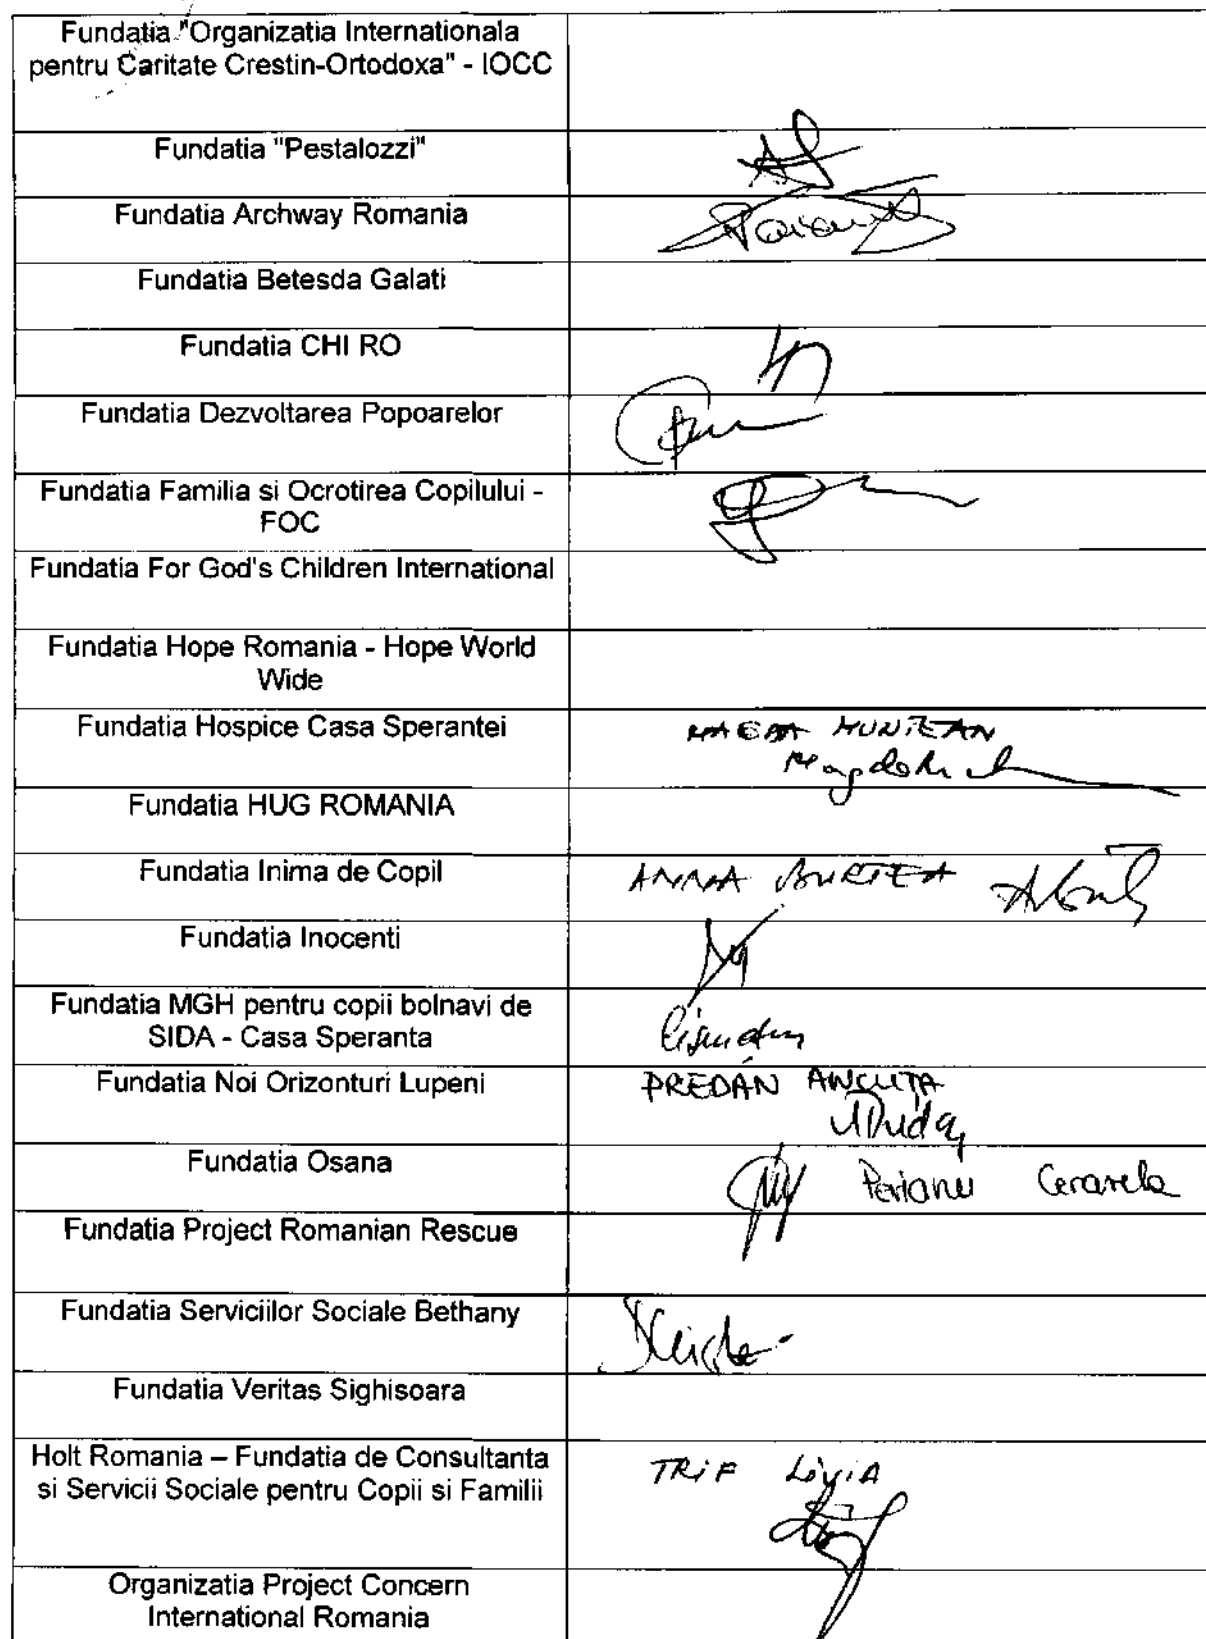 Fundatia "Organizatia Internationala
pentru Caritate Crestin-Ortodoxa" - IOCC
Fundatia "Pestalozzi"
Fundatia Archway Romania
Fundatia Betesda Galati
Fundatia CHI RO
Fundatia Dezvoltarea Popoarelor
Fundatia Familia si Ocrotirea Copilului -
FOC
Fundatia For God's Children International
Fundatia Hope Romania - Hope World
Wide
Fundatia Hospice Casa Sperantei
MUNTEAN
Fundatia HUG ROMANIA
Fundatia Inima de Copil
ANNA BURTEA
Fundatia Inocenti
Fundatia MGH pentru copii bolnavi de
SIDA - Casa Speranta
Fundatia Noi Orizonturi Lupeni
PREDAN ANCUȚA
Fundatia Osana
Perianu
Fundatia Project Romanian Rescue
Fundatia Serviciilor Sociale Bethany
Fundatia Veritas Sighisoara
Holt Romania – Fundatia de Consultanta
si Servicii Sociale pentru Copii si Familii
TRiF LiviA
Organizatia Project Concern
International Romania